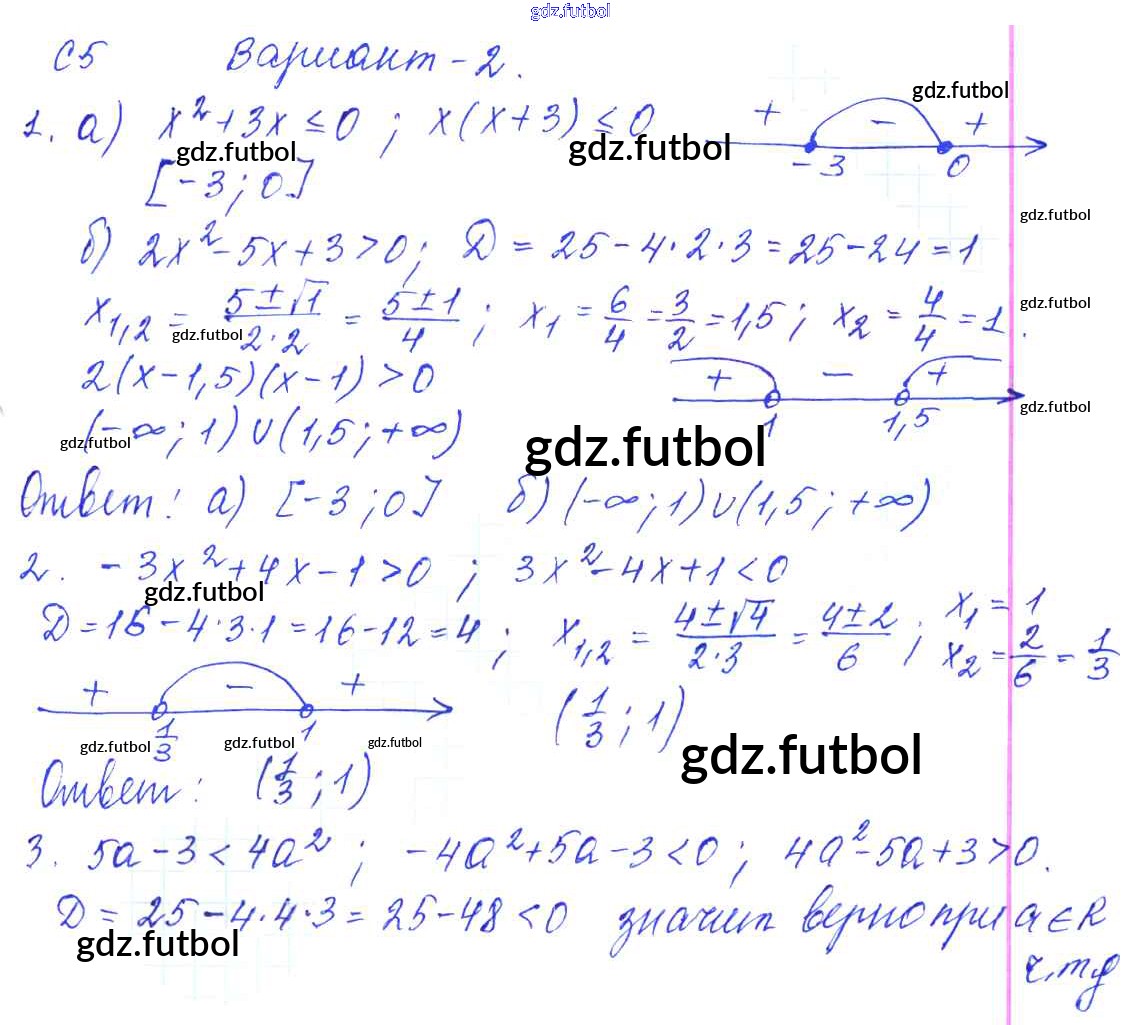 gdz.futbol
С5 Вариант-2.
1. а) x²+3x ≤ 0 ; x(x+3) ≤ 0 + − + gdz.futbol
gdz.futbol gdz.futbol -3 0
[-3; 0]
gdz.futbol
б) 2x²-5x+3>0; D = 25-4·2·3 = 25-24=1
x₁,₂ = (5±√1)/(2·2) = (5±1)/4 ; x₁ = 6/4 = 3/2 = 1,5 ; x₂ = 4/4 = 1. gdz.futbol
gdz.futbol
2(x-1,5)(x-1) > 0 + − +
1 1,5 gdz.futbol
gdz.futbol (-∞; 1) ∪ (1,5; +∞) gdz.futbol
Ответ: а) [-3; 0] б) (-∞; 1) ∪ (1,5; +∞)
2. -3x²+4x-1>0 ; 3x²-4x+1<0
gdz.futbol
D = 16-4·3·1 = 16-12 = 4 ; x₁,₂ = (4±√4)/(2·3) = (4±2)/6 ; x₁ = 1
x₂ = 2/6 = 1/3
+ − +
1/3 1 (1/3; 1)
gdz.futbol gdz.futbol gdz.futbol gdz.futbol
Ответ: (1/3; 1)
3. 5a-3<4a² ; -4a²+5a-3<0; 4a²-5a+3>0.
D = 25-4·4·3 = 25-48 <0 значит верно при a∈R
gdz.futbol
ч.тд